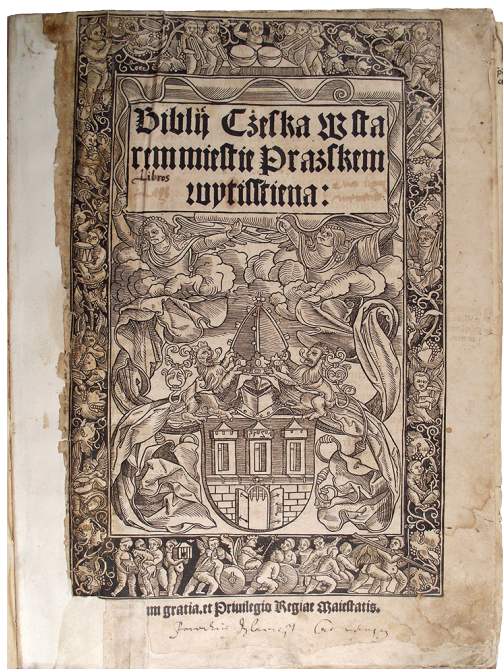 Biblij Cżeska W sta
remmiestie Prazskem
wytisstiena:
Libros
gratia. et Priuilegio Regiae Maiestatis.